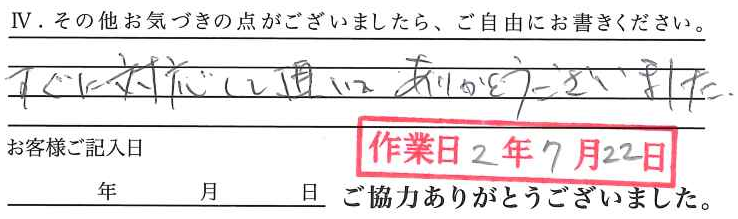 Ⅳ．その他お気づきの点がございましたら、ご自由にお書きください。
すぐに対応して頂いて ありがとうございました.
お客様ご記入日
作業日 2年7月22日
年 月 日 ご協力ありがとうございました。